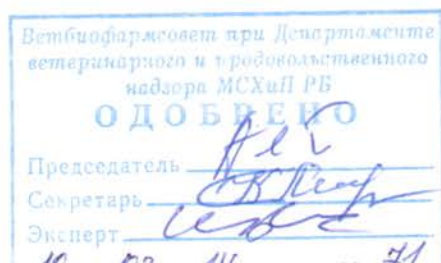 Ветбиофармсовет при Департаменте
ветеринарного и продовольственного
надзора МСХиП РБ
ОДОБРЕНО
Председатель
Секретарь
Эксперт
71